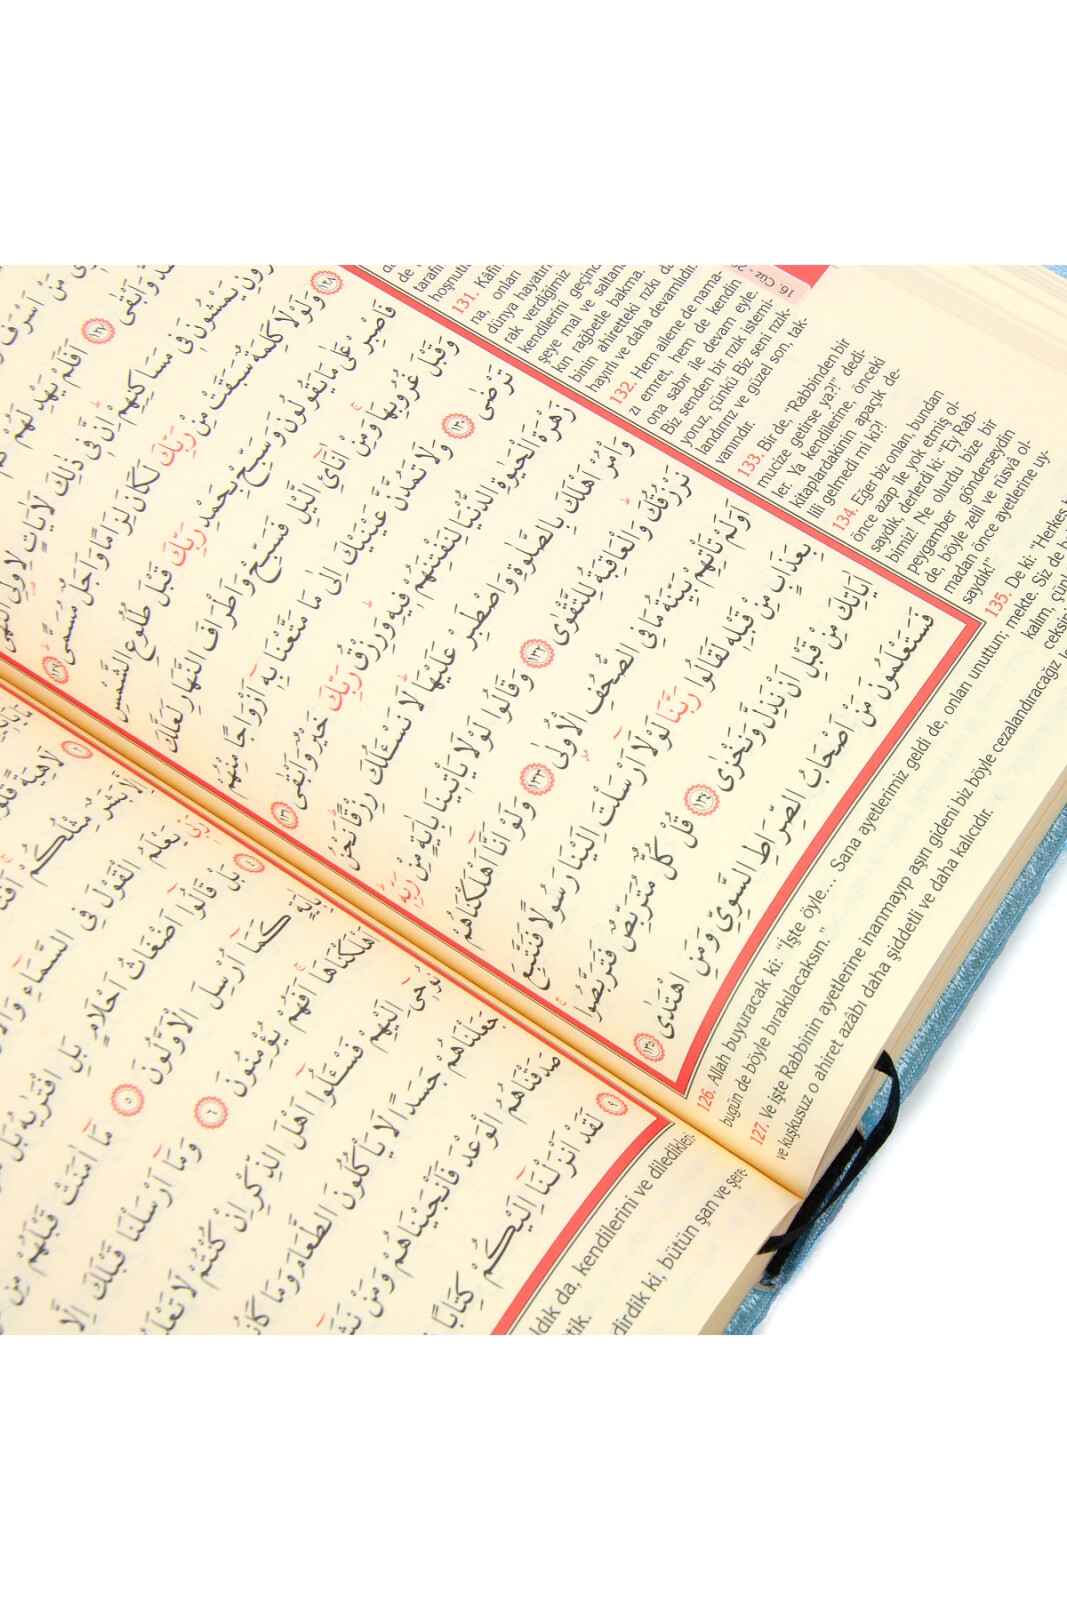 مَنْ اَسْرَفَ
وَاَبْقٰى ١٢٧ اَفَلَمْ يَهْدِ لَهُمْ
يَمْشُونَ ف۪ي مَسَاكِنِهِمْ اِنَّ ف۪ي ذٰلِكَ لَاٰيَاتٍ لِاُو۬لِي النُّهٰى
١٢٨ وَلَوْلَا كَلِمَةٌ سَبَقَتْ مِنْ رَبِّكَ لَكَانَ لِزَامًا وَاَجَلٌ مُسَمًّى ١٢٩
فَاصْبِرْ عَلٰى مَا يَقُولُونَ وَسَبِّحْ بِحَمْدِ رَبِّكَ قَبْلَ طُلُوعِ الشَّمْسِ
وَقَبْلَ غُرُوبِهَا وَمِنْ اٰنَٓائِ الَّيْلِ فَسَبِّحْ وَاَطْرَافَ النَّهَارِ لَعَلَّكَ
تَرْضٰى ١٣٠ وَلَا تَمُدَّنَّ عَيْنَيْكَ اِلٰى مَا مَتَّعْنَا بِه۪ٓ اَزْوَاجًا مِنْهُمْ
زَهْرَةَ الْحَيٰوةِ الدُّنْيَا لِنَفْتِنَهُمْ ف۪يهِ وَرِزْقُ رَبِّكَ خَيْرٌ وَاَبْقٰى ١٣١
وَأْمُرْ اَهْلَكَ بِالصَّلٰوةِ وَاصْطَبِرْ عَلَيْهَا لَا نَسْـَٔلُكَ رِزْقًا نَحْنُ
نَرْزُقُكَ وَالْعَاقِبَةُ لِلتَّقْوٰى ١٣٢ وَقَالُوا لَوْلَا يَأْت۪ينَا بِاٰيَةٍ مِنْ رَبِّه۪
اَوَلَمْ تَأْتِهِمْ بَيِّنَةُ مَا فِي الصُّحُفِ الْاُو۫لٰى ١٣٣ وَلَوْ اَنَّٓا اَهْلَكْنَاهُمْ
بِعَذَابٍ مِنْ قَبْلِه۪ لَقَالُوا رَبَّنَا لَوْلَٓا اَرْسَلْتَ اِلَيْنَا رَسُولًا فَنَتَّبِعَ
اٰيَاتِكَ مِنْ قَبْلِ اَنْ نَذِلَّ وَنَخْزٰى ١٣٤ قُلْ كُلٌّ مُتَرَبِّصٌ فَتَرَبَّصُوا
فَسَتَعْلَمُونَ مَنْ اَصْحَابُ الصِّرَاطِ السَّوِيِّ وَمَنِ اهْتَدٰى ١٣٥
16. Cüz -
de
tarafın
hoşnutlu
131. Kâfirl
na, onları
dünya hayatın
rak verdiğimiz
kendilerini geçind
şeye mal ve saltana
kın rağbetle bakma.
binin ahiretteki rızkı da
hayırlı ve daha devamlıdır.
132. Hem ailene de nama-
zı emret, hem de kendin
ona sabır ile devam eyle.
Biz senden bir rızık istemi-
yoruz, çünkü Biz seni rızık-
landırırız ve güzel son, tak-
vanındır.
133. Bir de, "Rabbinden bir
mucize getirse ya?!" dedi-
ler. Ya kendilerine, önceki
kitaplardakinin apaçık de-
lili gelmedi mi ki?!
134. Eğer biz onları, bundan
önce azap ile yok etmiş ol-
saydık, derlerdi ki: "Ey Rab-
bimiz! Ne olurdu bize bir
peygamber gönderseydin
de, böyle zelil ve rüsvâ ol-
madan önce ayetlerine uy-
saydık!"
135. De ki: "Herkes b
mekte. Siz de b
kalım, çünk
ceksin
126. Allah buyuracak ki: "İşte öyle... Sana ayetlerimiz geldi de, onları unuttun;
bugün de böyle bırakılacaksın."
127. Ve işte Rabbinin ayetlerine inanmayıp aşırı gideni biz böyle cezalandıracağız
ve kuşkusuz o ahiret azâbı daha şiddetli ve daha kalıcıdır.
١ لَاهِيَةً قُلُو
اِلَّا بَشَرٌ مِثْلُكُمْ
يَعْلَمُ الْقَوْلَ فِي السَّمَٓاءِ
٤ بَلْ قَالُٓوا اَضْغَاثُ اَحْلَامٍ بَلِ افْتَرٰيهُ بَلْ
كَمَٓا اُرْسِلَ الْاَوَّلُونَ ٥ مَٓا اٰمَنَتْ قَبْلَهُمْ مِنْ
اَهْلَكْنَاهَا اَفَهُمْ يُؤْمِنُونَ ٦ وَمَٓا اَرْسَلْنَا قَبْلَكَ اِلَّا
نُوح۪ٓي اِلَيْهِمْ فَسْـَٔلُٓوا اَهْلَ الذِّكْرِ اِنْ كُنْتُمْ لَا تَعْلَمُ
جَعَلْنَاهُمْ جَسَدًا لَا يَأْكُلُونَ الطَّعَامَ وَمَا كَانُ
صَدَقْنَاهُمُ الْوَعْدَ فَاَنْجَيْنَاهُمْ وَمَنْ نَشَٓ
٩ لَقَدْ اَنْزَلْنَٓا اِلَيْكُمْ كِتَابًا
ldık da, kendilerini ve diledikleri-
tik.
dirdik ki, bütün şan ve şere-